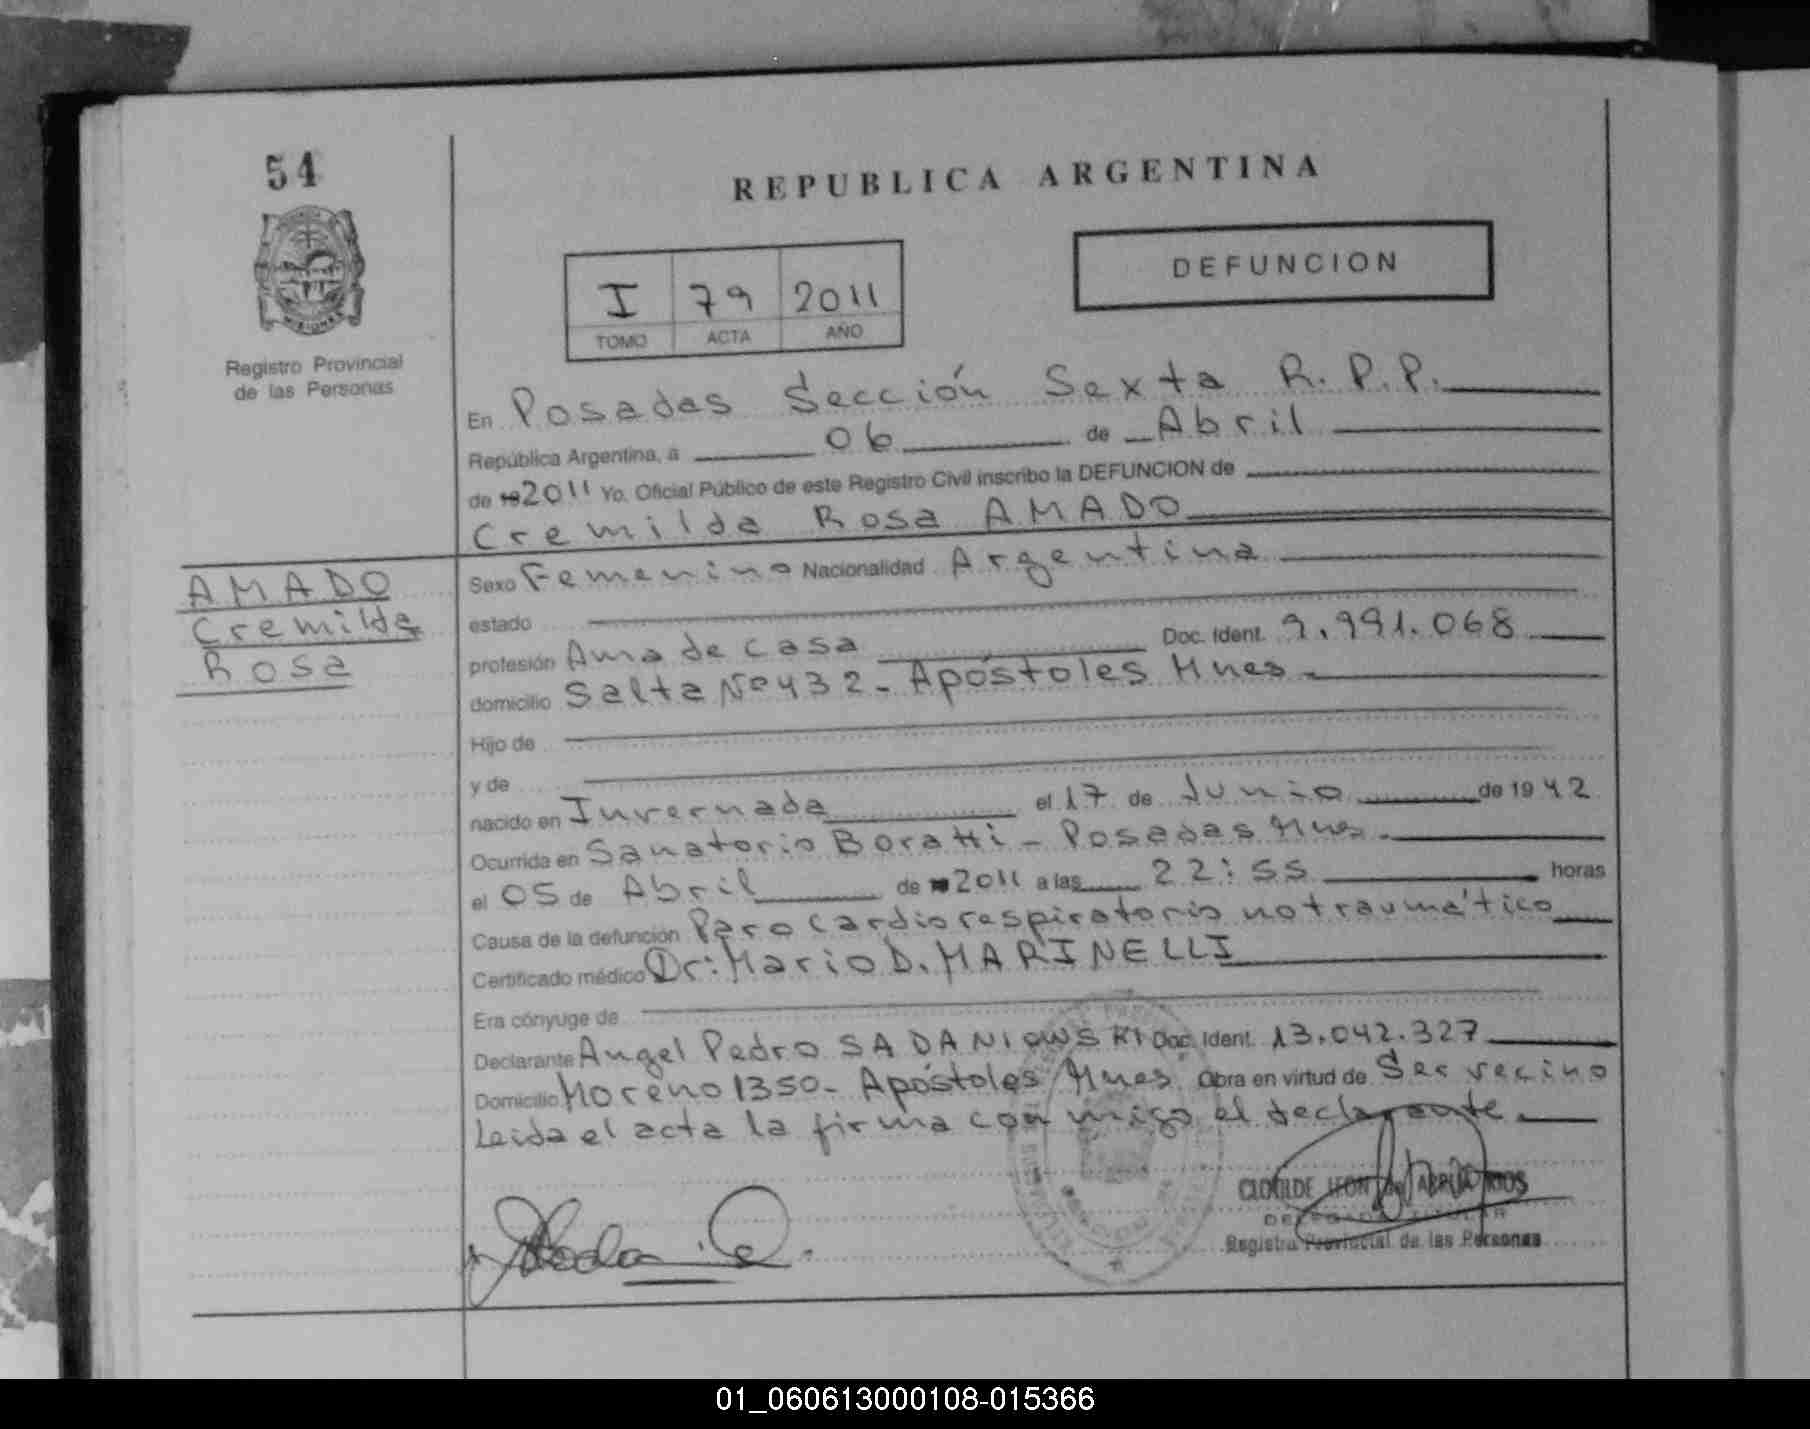 54
REPUBLICA ARGENTINA
MISIONES
Registro Provincial
de las Personas
I 79 2011
TOMO ACTA AÑO
DEFUNCION
En Posadas Sección Sexta R.P.P.
República Argentina, a 06 de Abril
de 19 2011 Yo, Oficial Público de este Registro Civil inscribo la DEFUNCION de
Cremilda Rosa AMADO
AMADO
Cremilda
Rosa
Sexo Femenino Nacionalidad Argentina
estado
profesión Ama de casa Doc. Ident. 9.991.068
domicilio Salta Nº 432 - Apóstoles Mnes
Hijo de
y de
nacido en Invernada el 17 de Junio de 1942
Ocurrida en Sanatorio Boratti - Posadas Mnes.
el 05 de Abril de 2011 a las 22:55 horas
Causa de la defunción Paro cardiorespiratorio no traumático
Certificado médico Dr: Mario D. MARINELLI
Era cónyuge de
Declarante Angel Pedro SADANIOWSKI Doc. Ident. 13.042.327
Domicilio Moreno 1350- Apóstoles Mnes Obra en virtud de Ser vecino
Leida el acta la firma conmigo el declarante
CLOTILDE LEON de
Registro Provincial de las Personas
01_060613000108-015366